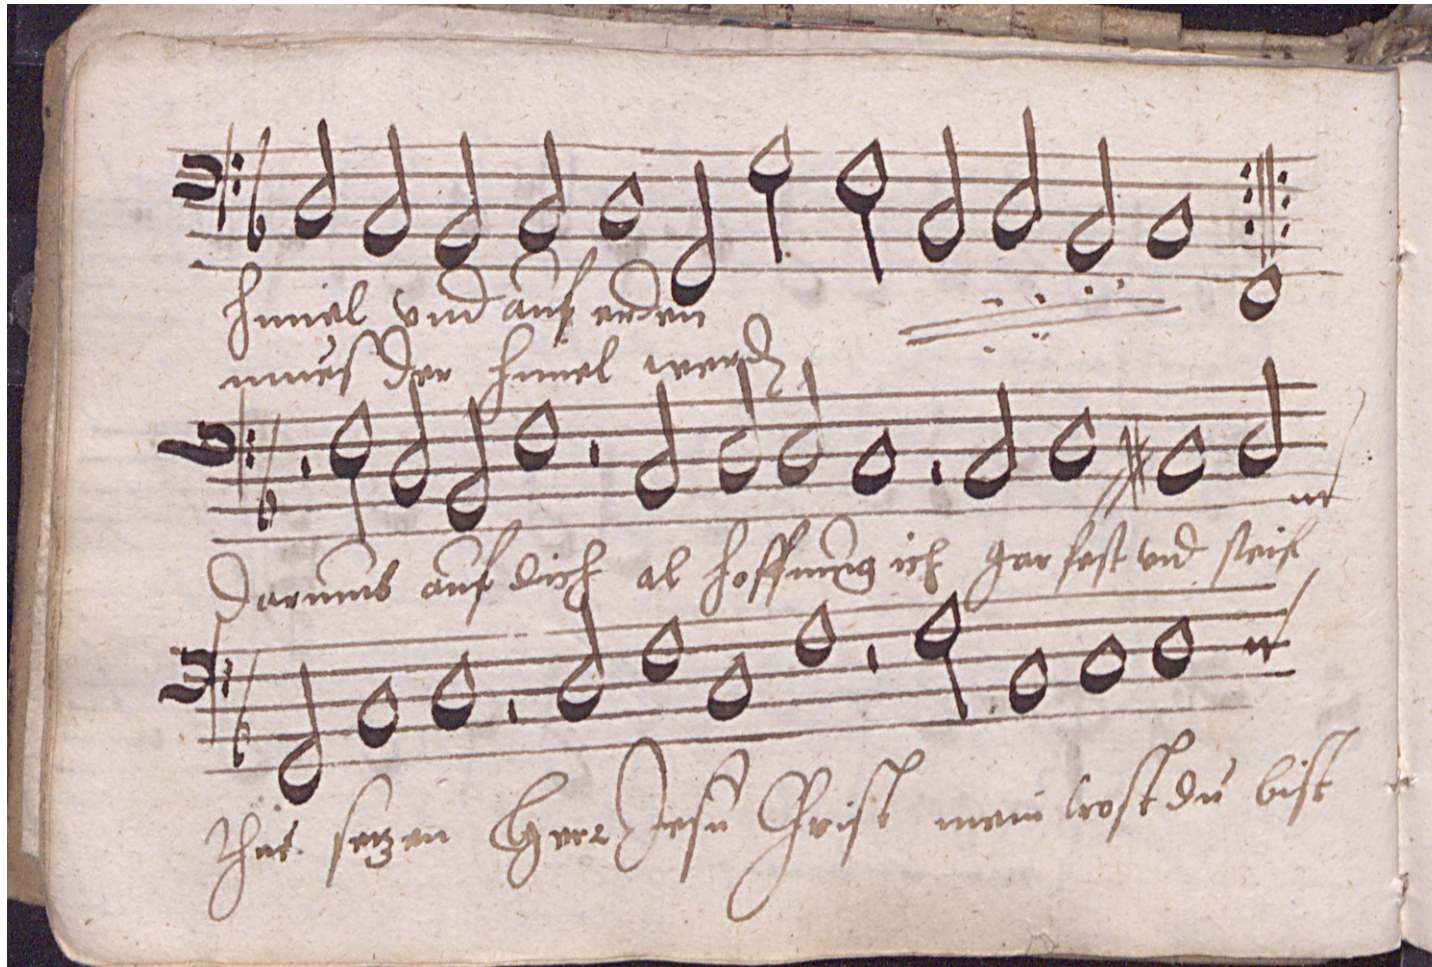 himel vnd auf erden
mues der himel werdn
Darumb auf dich al hoffnung ich gar fest vnd steif
thue setzen Herr Jesu Christ mein trost du bist